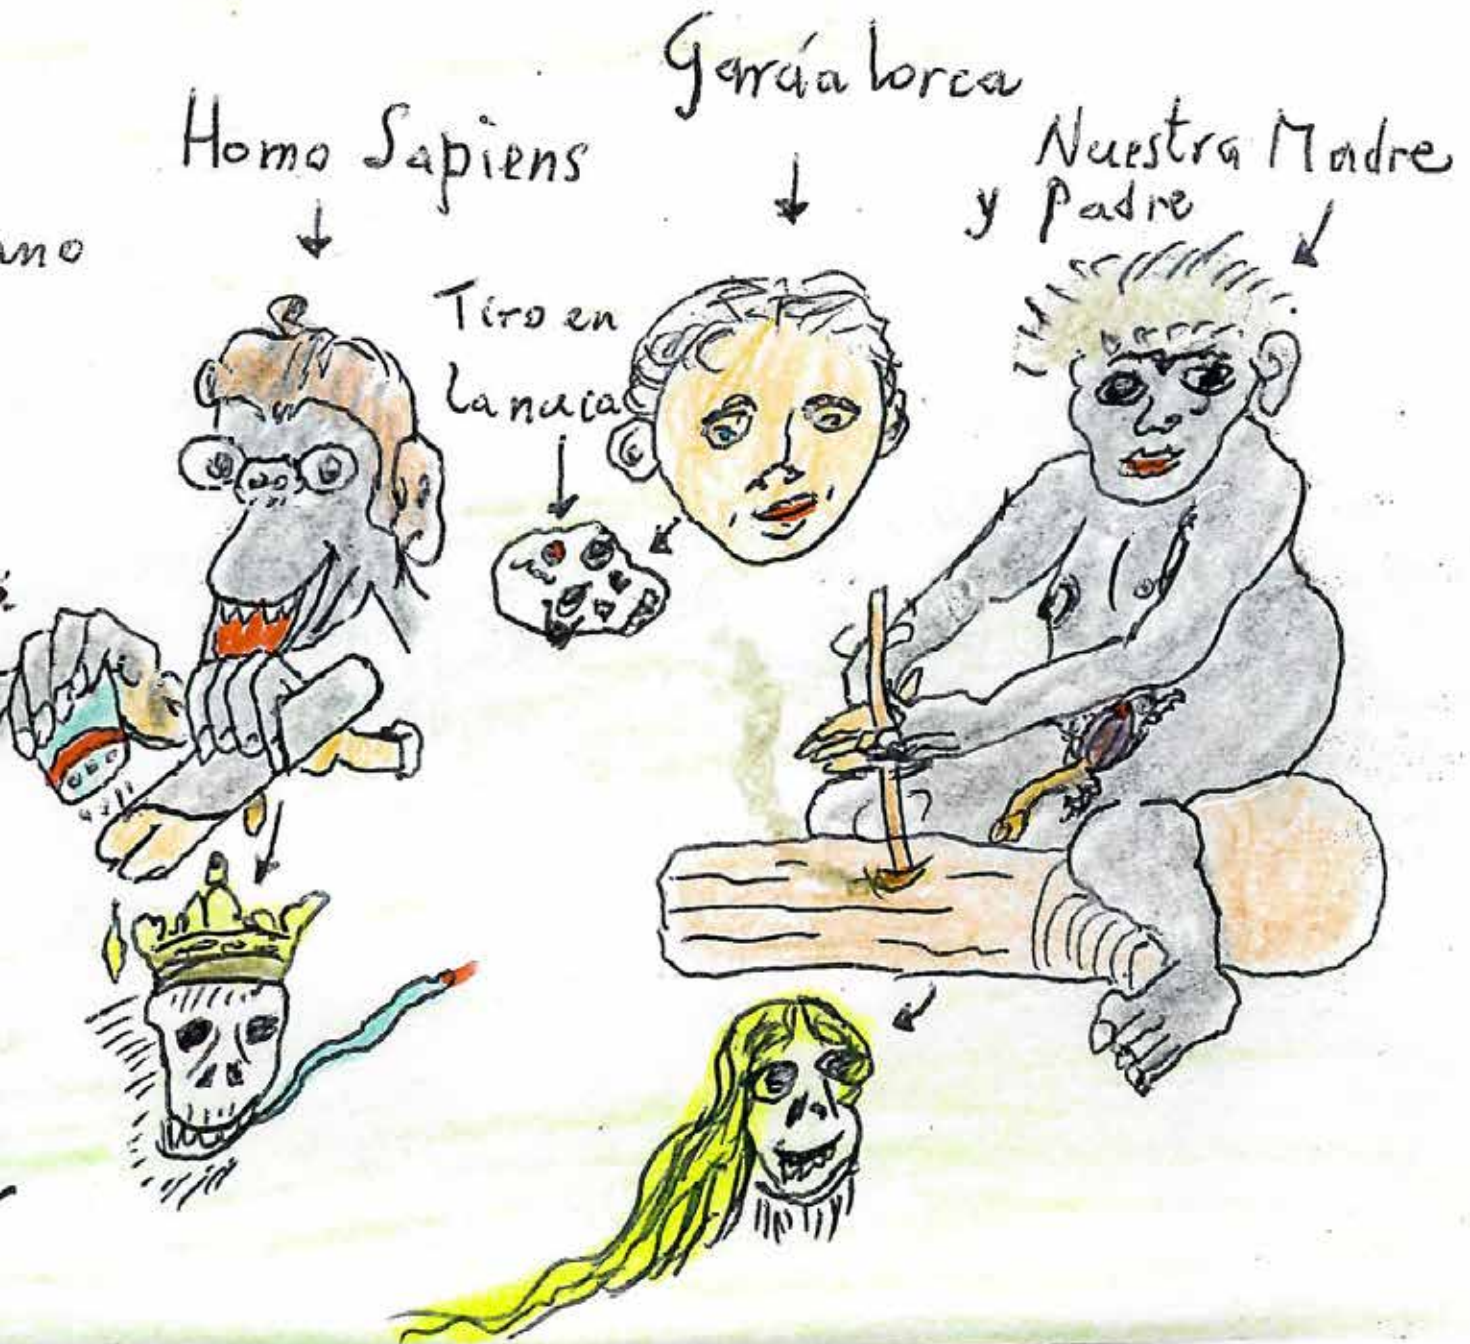 García lorca
Homo Sapiens
Nuestra Madre
y Padre
ano
Tiro en
la nuca